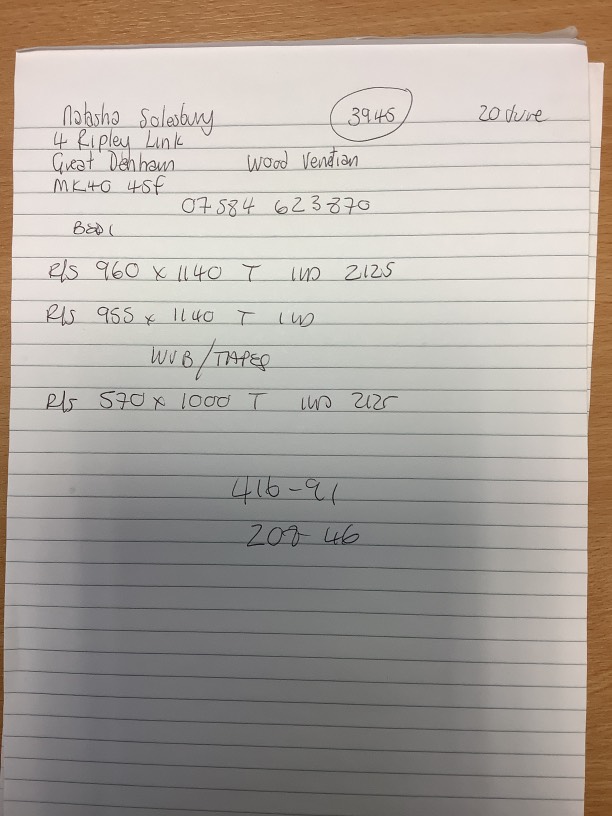 Natasha Salesbury 3945 20 June
4 Ripley Link
Great Denham Wood Venetian
MK40 4SF
07584 623870
Bed 1
R/S 960 x 1140 T IWD 2125
R/S 955 x 1140 T IWD
WVB/TAPES
R/S 570 x 1000 T IWD 2125
416-91
208-46